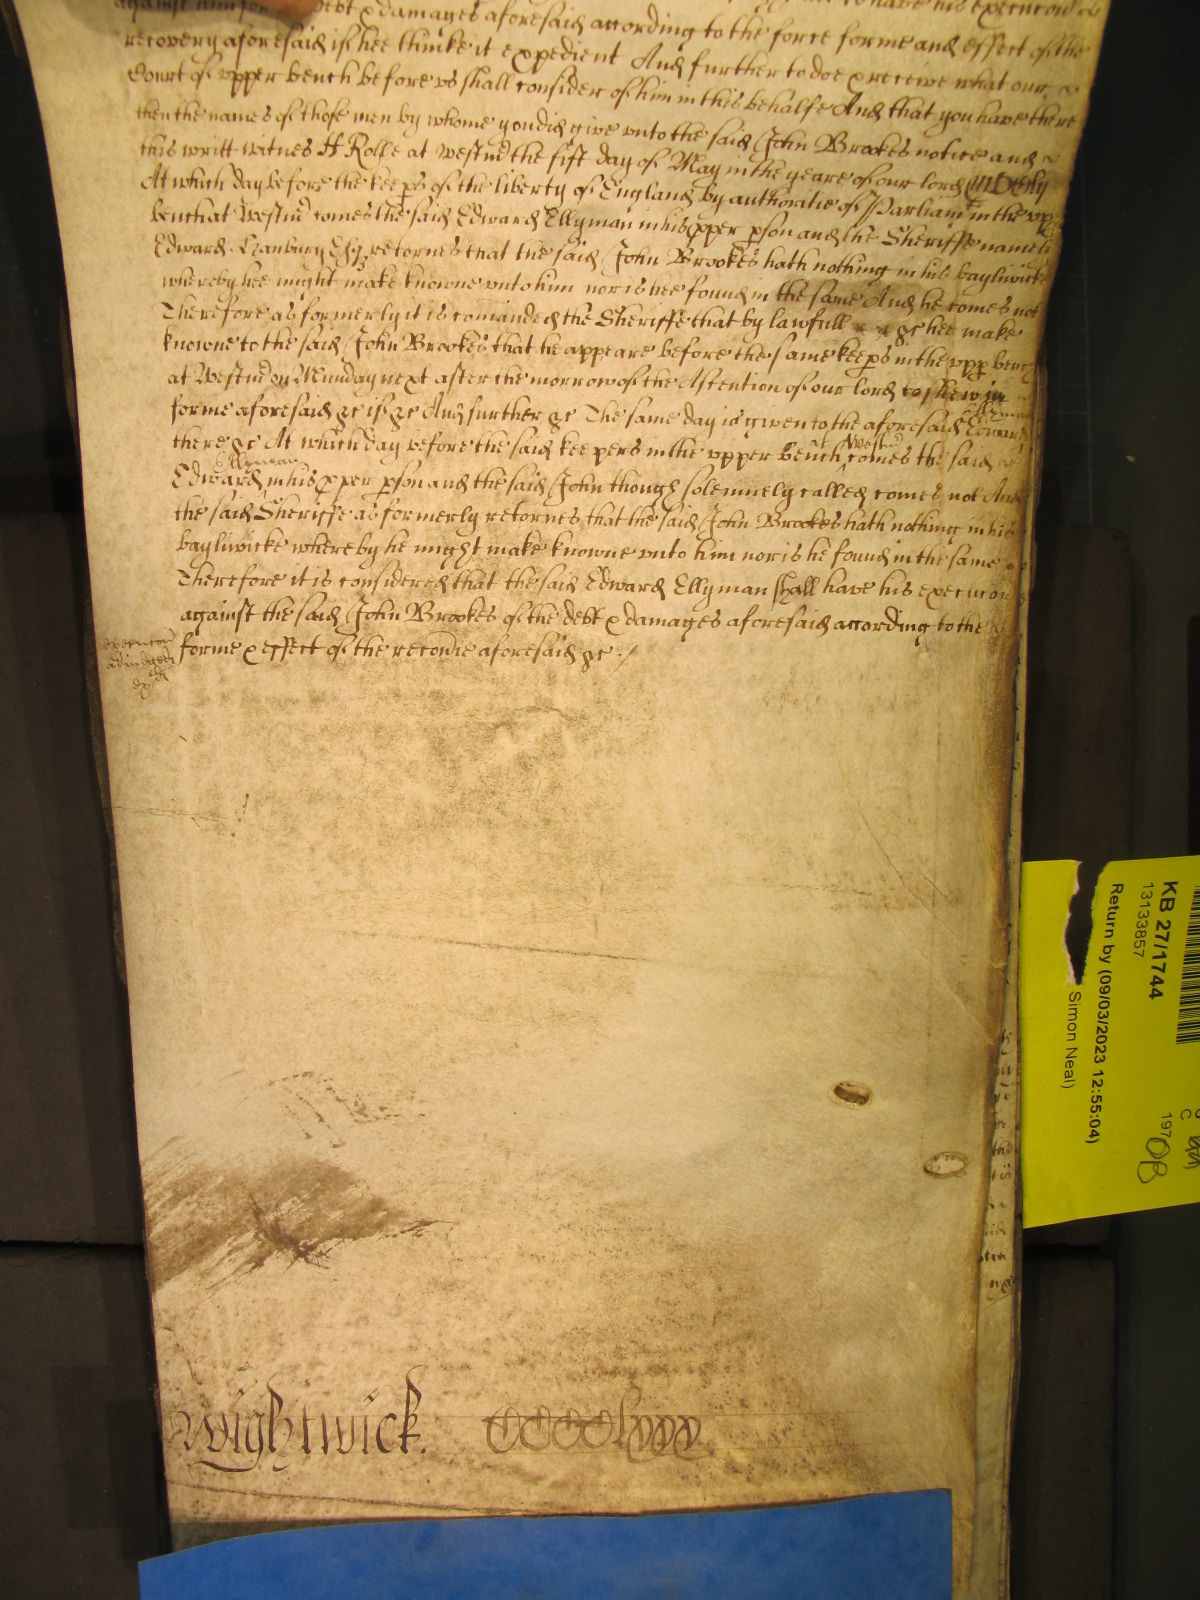 to have his execucon
against him for debt & damages aforesaid according to the force forme and effect of the
recovery aforesaid if hee thinke it expedient And further to doe & receive what our
Court of upper bench before us shall consider of him in this behalfe And that you have there
then the names of those men by whome you did give unto the said John Brookes notice and
this writt witnes H Rolle at Westmr the fift day of May in the yeare of our lord
At which day before the keeps of the liberty of England by authoritie of Parliamt in the upp
bench at Westmr comes the said Edward Ellyman in his pper pson and the Sheriffe namely
Edward Hanbury Esqr retornes that the said John Brookes hath nothing in his bayliwicke
whereby hee might make knowne unto him nor is hee found in the same And he comes not
Therefore as formerly it is comanded the Sheriffe that by lawfull &c hee make
knowne to the said John Brookes that he appeare before the same keeps in the upp bench
at Westmr on Munday next after the morrow of the Ascention of our lord to shew in
forme aforesaid &c if &c And further &c The same day is given to the aforesaid Edward Ellyman
there &c At which day before the said keepers in the upper bench at Westmr comes the said
Edward Ellyman in his pper pson and the said John though solemnely called comes not And
the said Sheriffe as formerly retornes that the said John Brookes hath nothing in his
bayliwicke whereby he might make knowne unto him nor is he found in the same
Therefore it is considered that the said Edward Ellyman shall have his execucon
against the said John Brookes of the debt & damages aforesaid according to the
forme & effect of the recovrie aforesaid &c
execucon
adiudged
Wightwick.
KB 27/1744
13133857
Return by (09/03/2023 12:55:04)
Simon Neal)